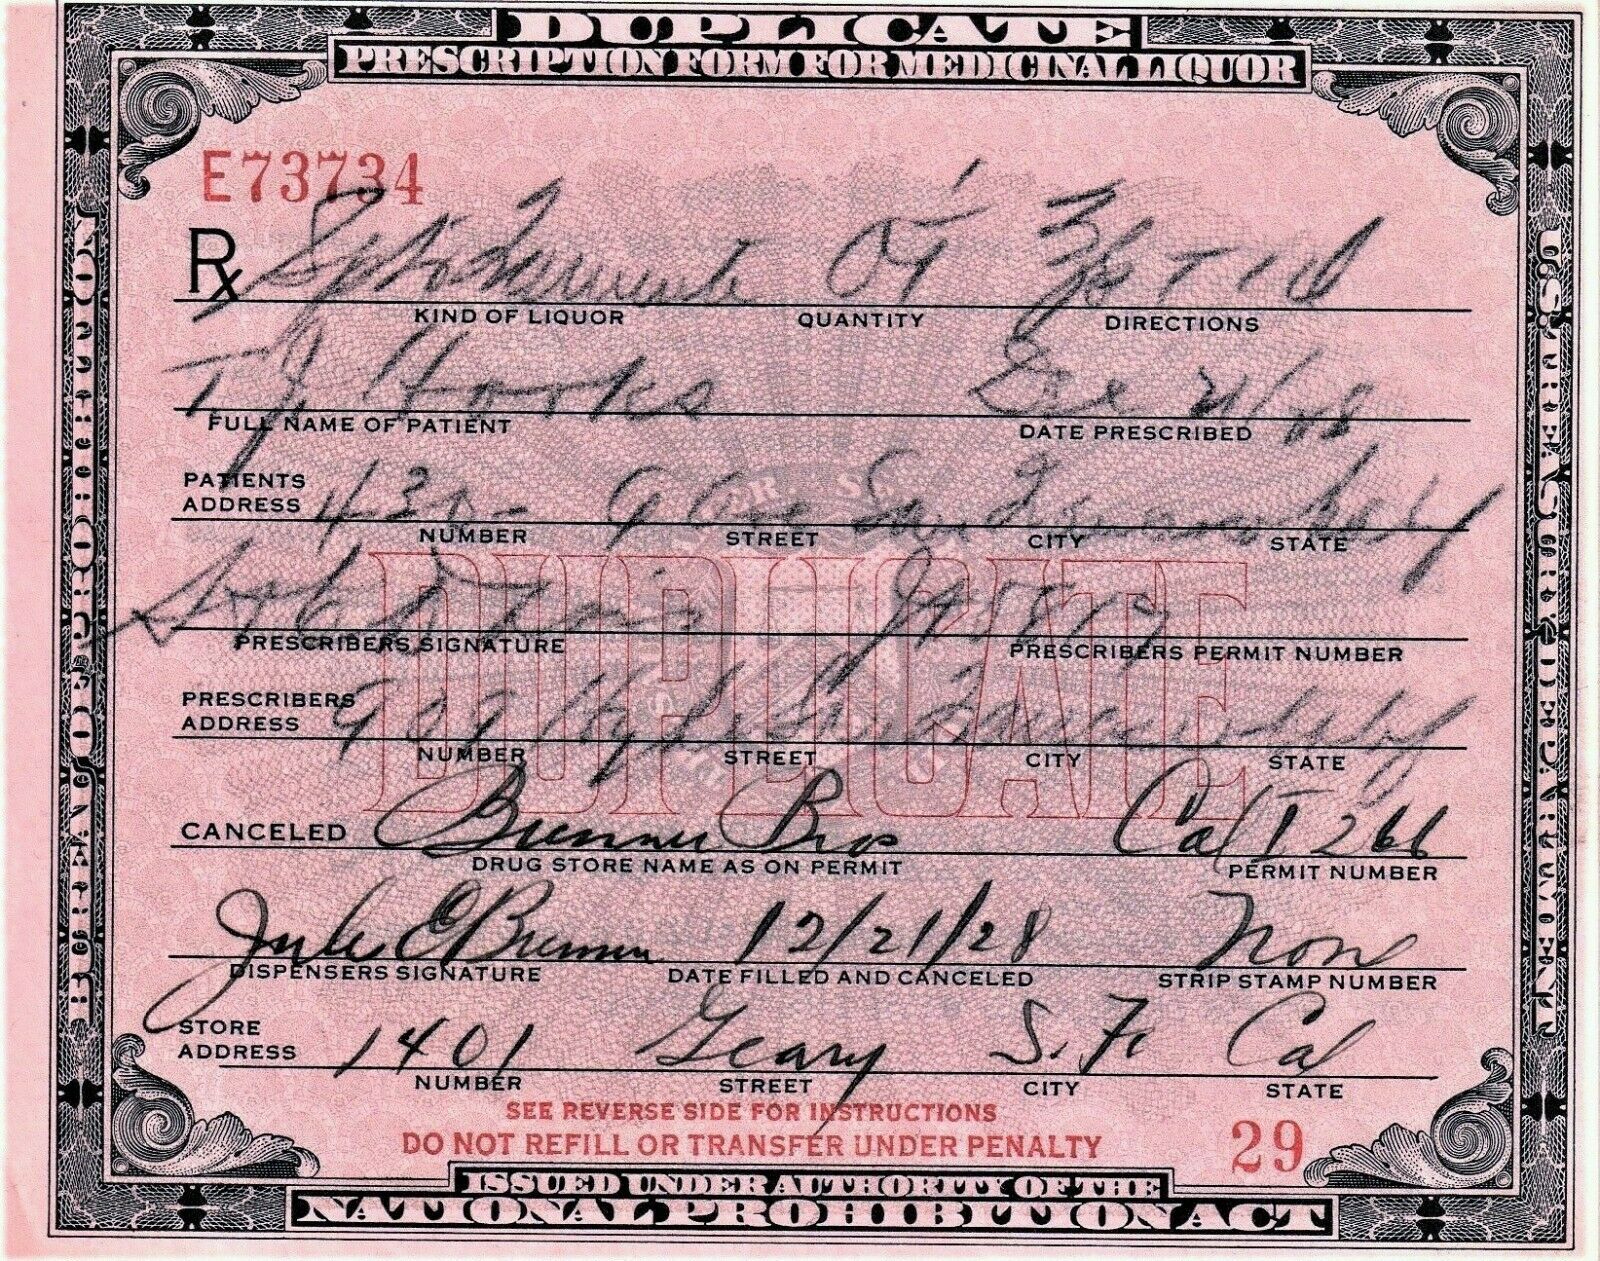 DUPLICATE
PRESCRIPTION FORM FOR MEDICINAL LIQUOR
E73734
Rx Spts Frumenti
KIND OF LIQUOR QUANTITY DIRECTIONS
T J Hooks Dec 21/28
FULL NAME OF PATIENT DATE PRESCRIBED
PATIENTS ADDRESS 430 - 9 Ave San Francisco Calif
NUMBER STREET CITY STATE
PRESCRIBERS SIGNATURE PRESCRIBERS PERMIT NUMBER
PRESCRIBERS ADDRESS 909 Hyde St San Francisco Calif
NUMBER STREET CITY STATE
DUPLICATE
CANCELED Brunner Bros Cal I 266
DRUG STORE NAME AS ON PERMIT PERMIT NUMBER
Jules E Brunner 12/21/28 None
DISPENSERS SIGNATURE DATE FILLED AND CANCELED STRIP STAMP NUMBER
STORE ADDRESS 1401 Geary S. F. Cal
NUMBER STREET CITY STATE
SEE REVERSE SIDE FOR INSTRUCTIONS
DO NOT REFILL OR TRANSFER UNDER PENALTY
29
ISSUED UNDER AUTHORITY OF THE
NATIONAL PROHIBITION ACT